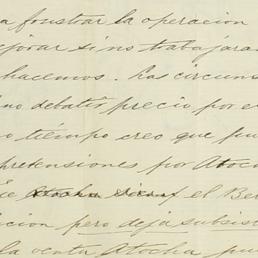 a frustrar la operacion
ejorar si no trabajara
hacemos. Las circuns
no debatir precio por e
o tiempo creo que pu
pretensiones por Atoc
el Be
cion pero deja subsist
la venta Atocha pu